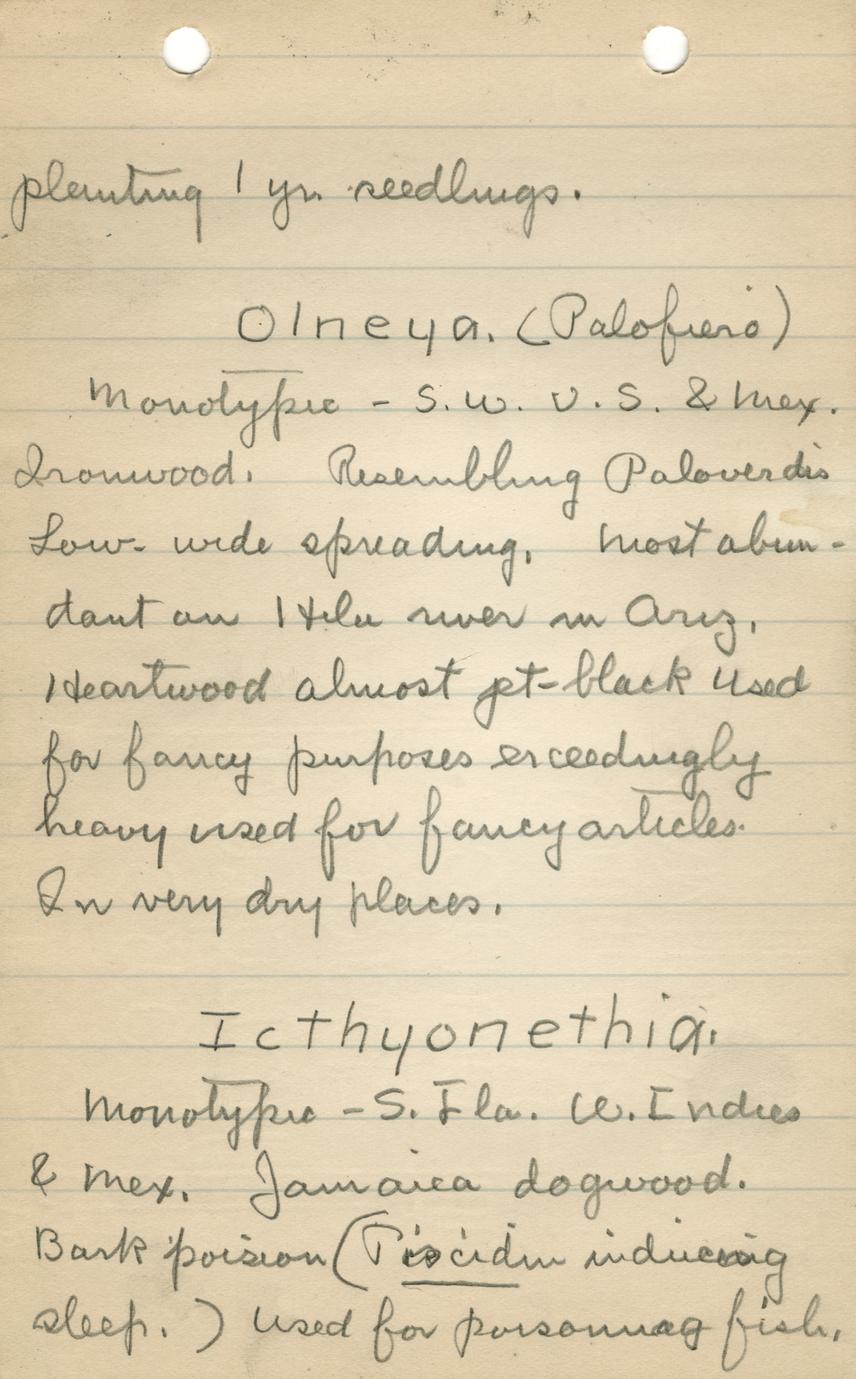 planting 1 yr. seedlings.
Olneya. (Palofierro)
Monotypic - S.W. U.S. & Mex.
Ironwood. Resembling Paloverdis
Low- wide spreading, most abun-
dant on Hila river in Ariz,
Heartwood almost jet-black used
for fancy purposes exceedingly
heavy used for fancy articles.
In very dry places.
Icthyonethia.
Monotypic - S. Fla. W. Indies
& Mex. Jamaica dogwood.
Bark poision (Piscidin inducing
sleep.) used for poisonnag fish,